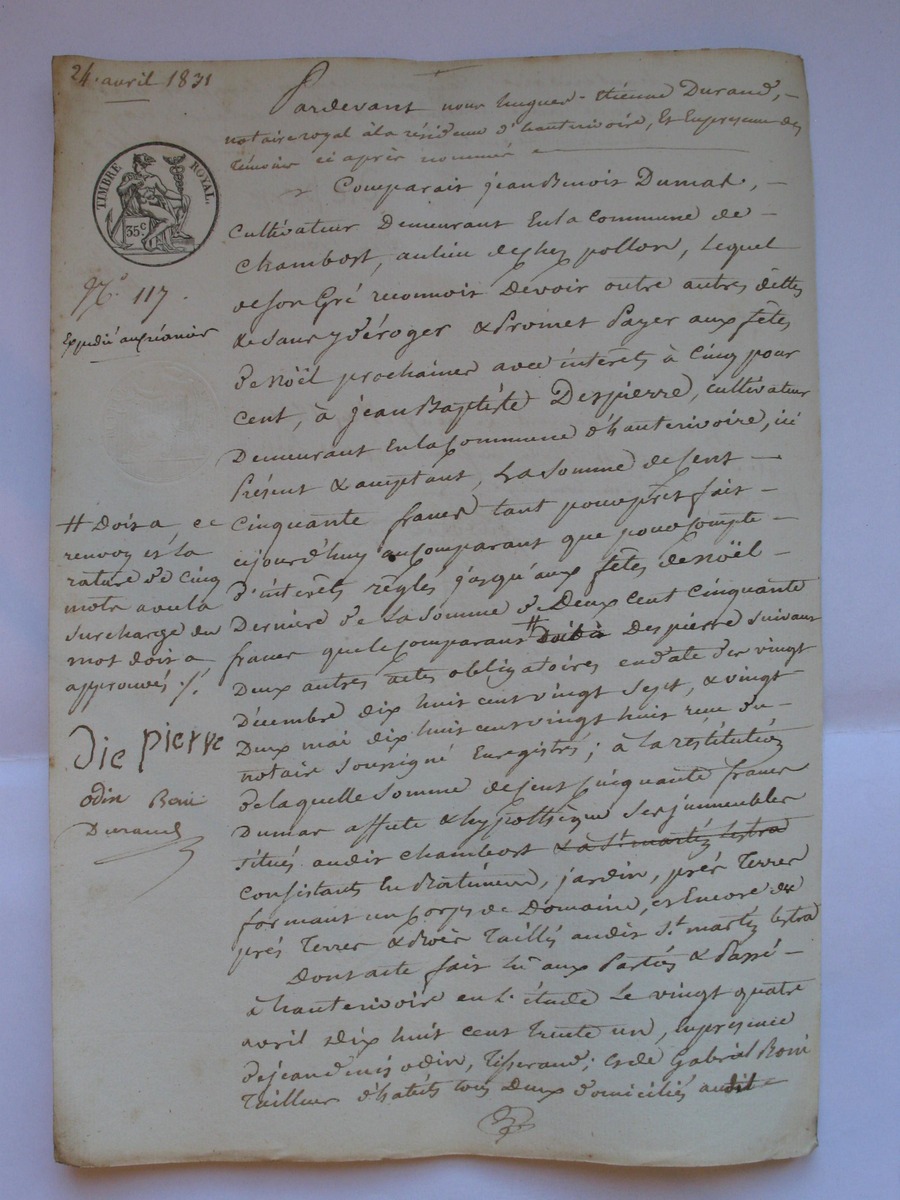 24 avril 1831
TIMBRE ROYAL
35 c
N.o 117.
Expédié au créancier
Pardevant nous hugues-Etienne Durand,
notaire royal à la résidence d'hauterivoire, Et En presence des
témoins ci après nommés
Comparait jean Benois Dumas,
cultivateur Demeurant En la commune de
Chambost, au lieu de chez pollon, Lequel
de son Gré reconnois Devoir outre autres dettes
& sans y déroger & Promet Payer aux fêtes
de Noël prochaines avec intérêts à Cinq pour
cent, à jean Baptiste Despierre, cultivateur
Demeurant En la Commune d'hauterivoire, ici
Présent & acceptant, La somme de Cent
cinquante francs tant pour prêt fait
cejourd'huy au Comparant que pour Compte
d'intérêts réglés jusqu'aux fêtes de Noël
Dernière de La somme de Deux cent cinquante
francs que le Comparant # doit à Despierre suivant
Deux autres actes obligatoires en date des vingt
Décembre dix huit cent vingt sept, & vingt
Deux mai dix huit cent vingt huit reçu du
notaire soussigné Enregistrés ; à La réstitution
de laquelle somme de Cent Cinquante francs
Dumas affecte & hypothèque ses jmmeubles
situés audit chambost & à St martin lestra
Consistants En Batiments, jardin, prés Terres
formant un Corps de Domaine, et Encore des
prés Terres & Bois Taillis audit St martin lestra
Dont acte fait lu aux Parties & Passé
à hauterivoire en L'étude Le vingt quatre
avril Dix huit cent trente un, En présence
de jean denis odin, Tisserand ; et de Gabriel Boni
Tailleur d'habits tous Deux domiciliés audit
# Dois a ce
renvoy et la
rature de Cinq
mots avec la
surcharge du
mot dois a
approuvés ./.
Die pierre
odin Boni
Durand